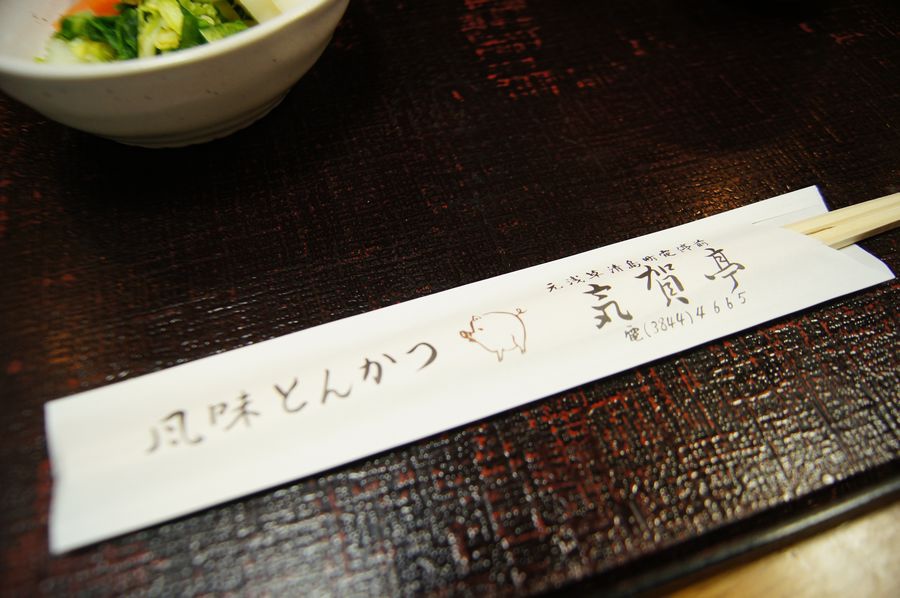 風味とんかつ
元浅草清島町電停前
気賀亭
電(3844)4665